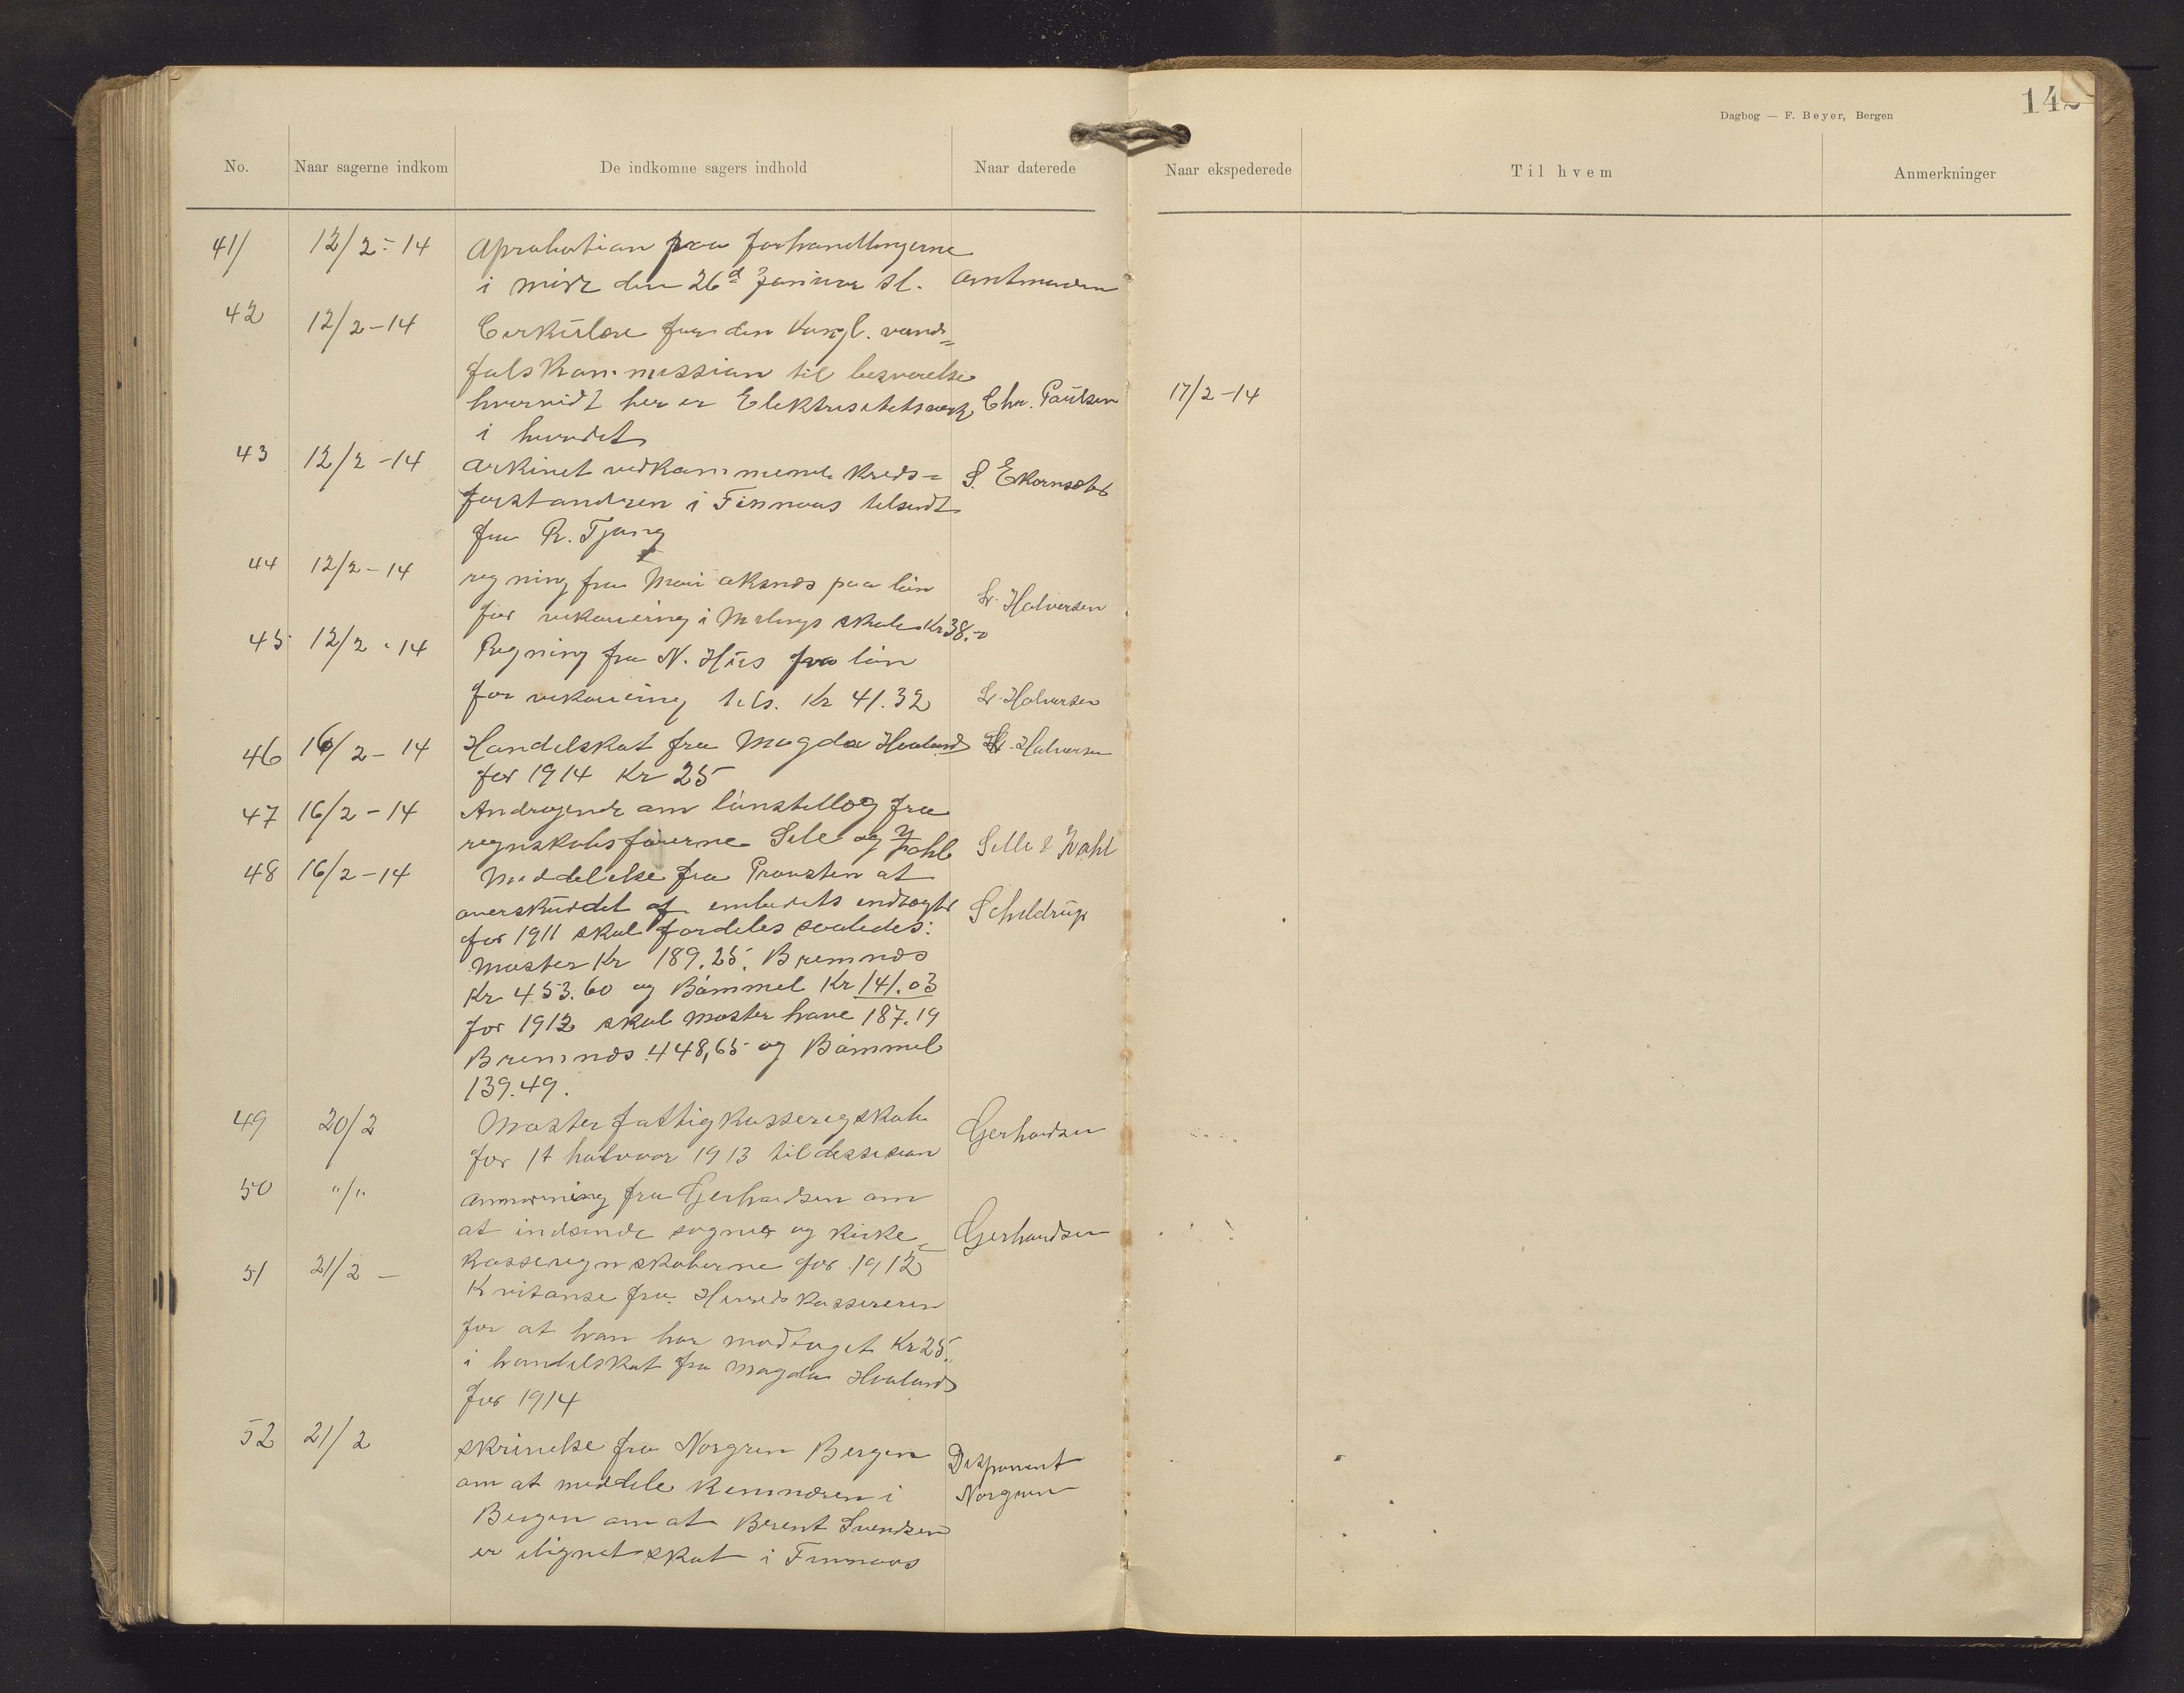 142
Dagbog — F. Beyer, Bergen
No. Naar sagerne indkom De indkomne sagers indhold Naar daterede Naar ekspederede Til hvem Anmerkninger
41/ 12/2-14 Aprobation paa forhandlingerne
i møde den 26d Januar sl. Amtmanden
42 12/2-14 Cirkulære fra den kongl. vand=
falskommission til besvarelse
hvorvidt her er Elektrisitetsverk Chr. Paulsen 17/2-14
i herredet
43 12/2-14 Arkivet vedkommende kreds= S. Ekornsæter
forstandren i Finnaas tilsendt
fra R. Tjong
44 12/2-14 regning fra Mari aksnes paa løn
for vikariering i Melings skole Kr 38.- L. Halversen
45 12/2-14 Regning fra N. Hus paa løn
for vikariering tils. Kr 41.32 L. Halversen
46 16/2-14 Handelskat fra Magda Hovland L. Halversen
for 1914 Kr 25
47 16/2-14 Andragende om lønstillæg fra
regnskabsførerne Sele og Zahl Selle & Zahl
48 16/2-14 Meddelelse fra Provsten at
overskuddet af embedets indtægter Scheldrup
for 1911 skal fordeles saaledes:
Moster Kr 189.25. Bremnes
Kr 453.60 og Bømmel Kr 141.03
for 1912 skal Moster have 187.19
Bremnes 448,65 og Bømmel
139.49.
49 20/2 Moster fattigkasseregskab Gerhardsen
for 1t halvaar 1913 til dessision
50 "/" Anmodning fra Gerhardsen om
at indsende sogne og kirke= Gerhardsen
kasseregnskaberne for 1912
51 21/2 - Kvitanse fra Herredskassereren
for at han har modtaget Kr 25.
i handelskat fra Magda Hovland
for 1914
52 21/2 Skrivelse fra Norgren Bergen Disponent
om at meddele Kemneren i Norgren
Bergen om at Berent Svendsen
er ilignet skat i Finnaas